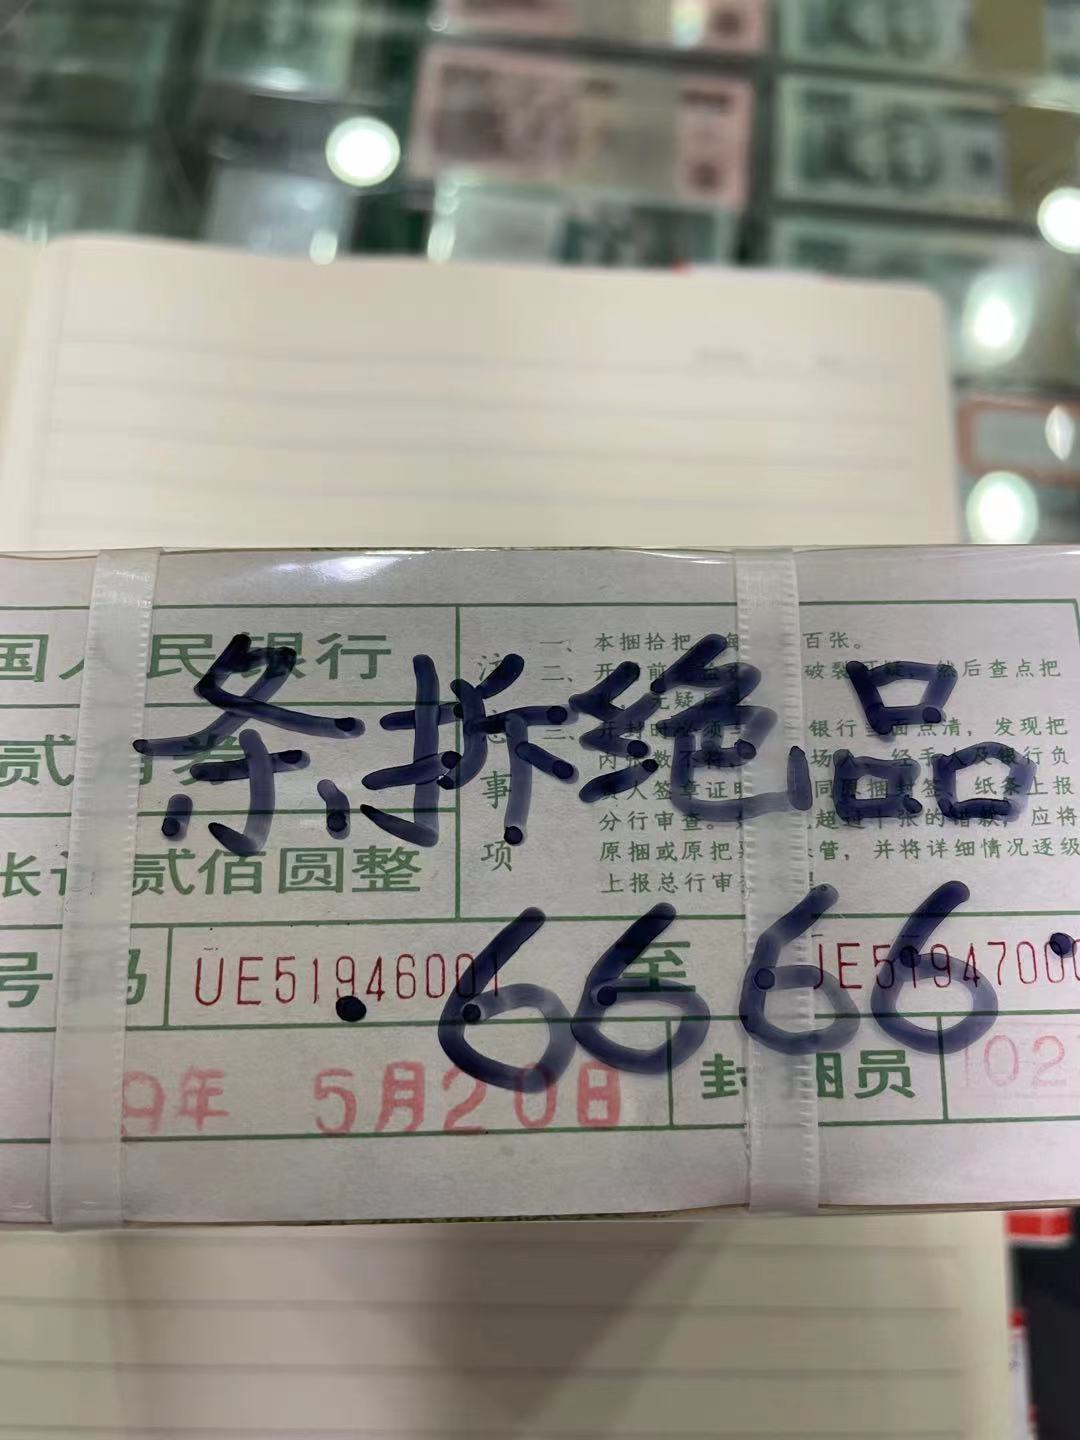 国人民银行
贰角券
张计贰佰圆整
号码 UE51946001 至 UE5194700
9年 5月20日
封捆员 102
注意事项
一、本捆拾把 每 百张。
二、开 前 破裂可疑，然后查点把
，无疑后
三、开封时必须 银行当面点清，发现把
内张数不符， 场人、经手人及银行负
责人签章证明 同原捆封签、纸条上报
分行审查。 超过十张的错款，应将
原捆或原把 管，并将详细情况逐级
上报总行审
条拆绝品
6666